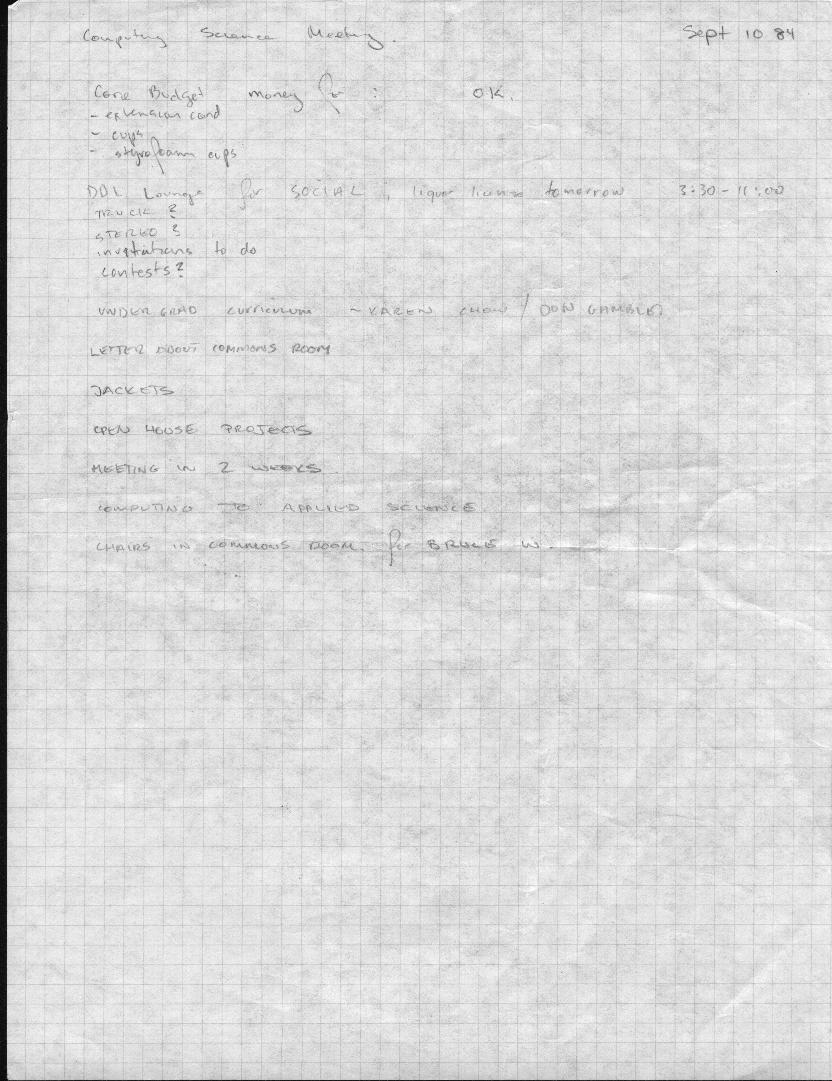 Computing Science Meeting. Sept 10 84
Core Budget money for : OK.
- extension cord
- cups
- styrofoam cups
DDL Lounge for SOCIAL ; liquor license tomorrow 3:30 - 11:00
TRUCK ?
STEREO ?
invitations to do
contests ?
UNDERGRAD curriculum - KAREN CHOW / DON GAMBLE
LETTER ABOUT COMMONS ROOM
JACKETS
OPEN HOUSE PROJECTS
MEETING IN 2 WEEKS.
COMPUTING TO APPLIED SCIENCE
CHAIRS IN COMMONS ROOM. for BRUCE W.